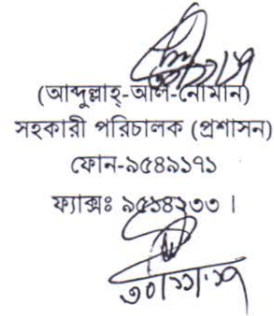 (আব্দুল্লাহ্-আল-নোমান)
সহকারী পরিচালক (প্রশাসন)
ফোন-৯৫৪৯১৭১
ফ্যাক্সঃ ৯৫১৪২৩৩ ।
৩০/১১/১৭